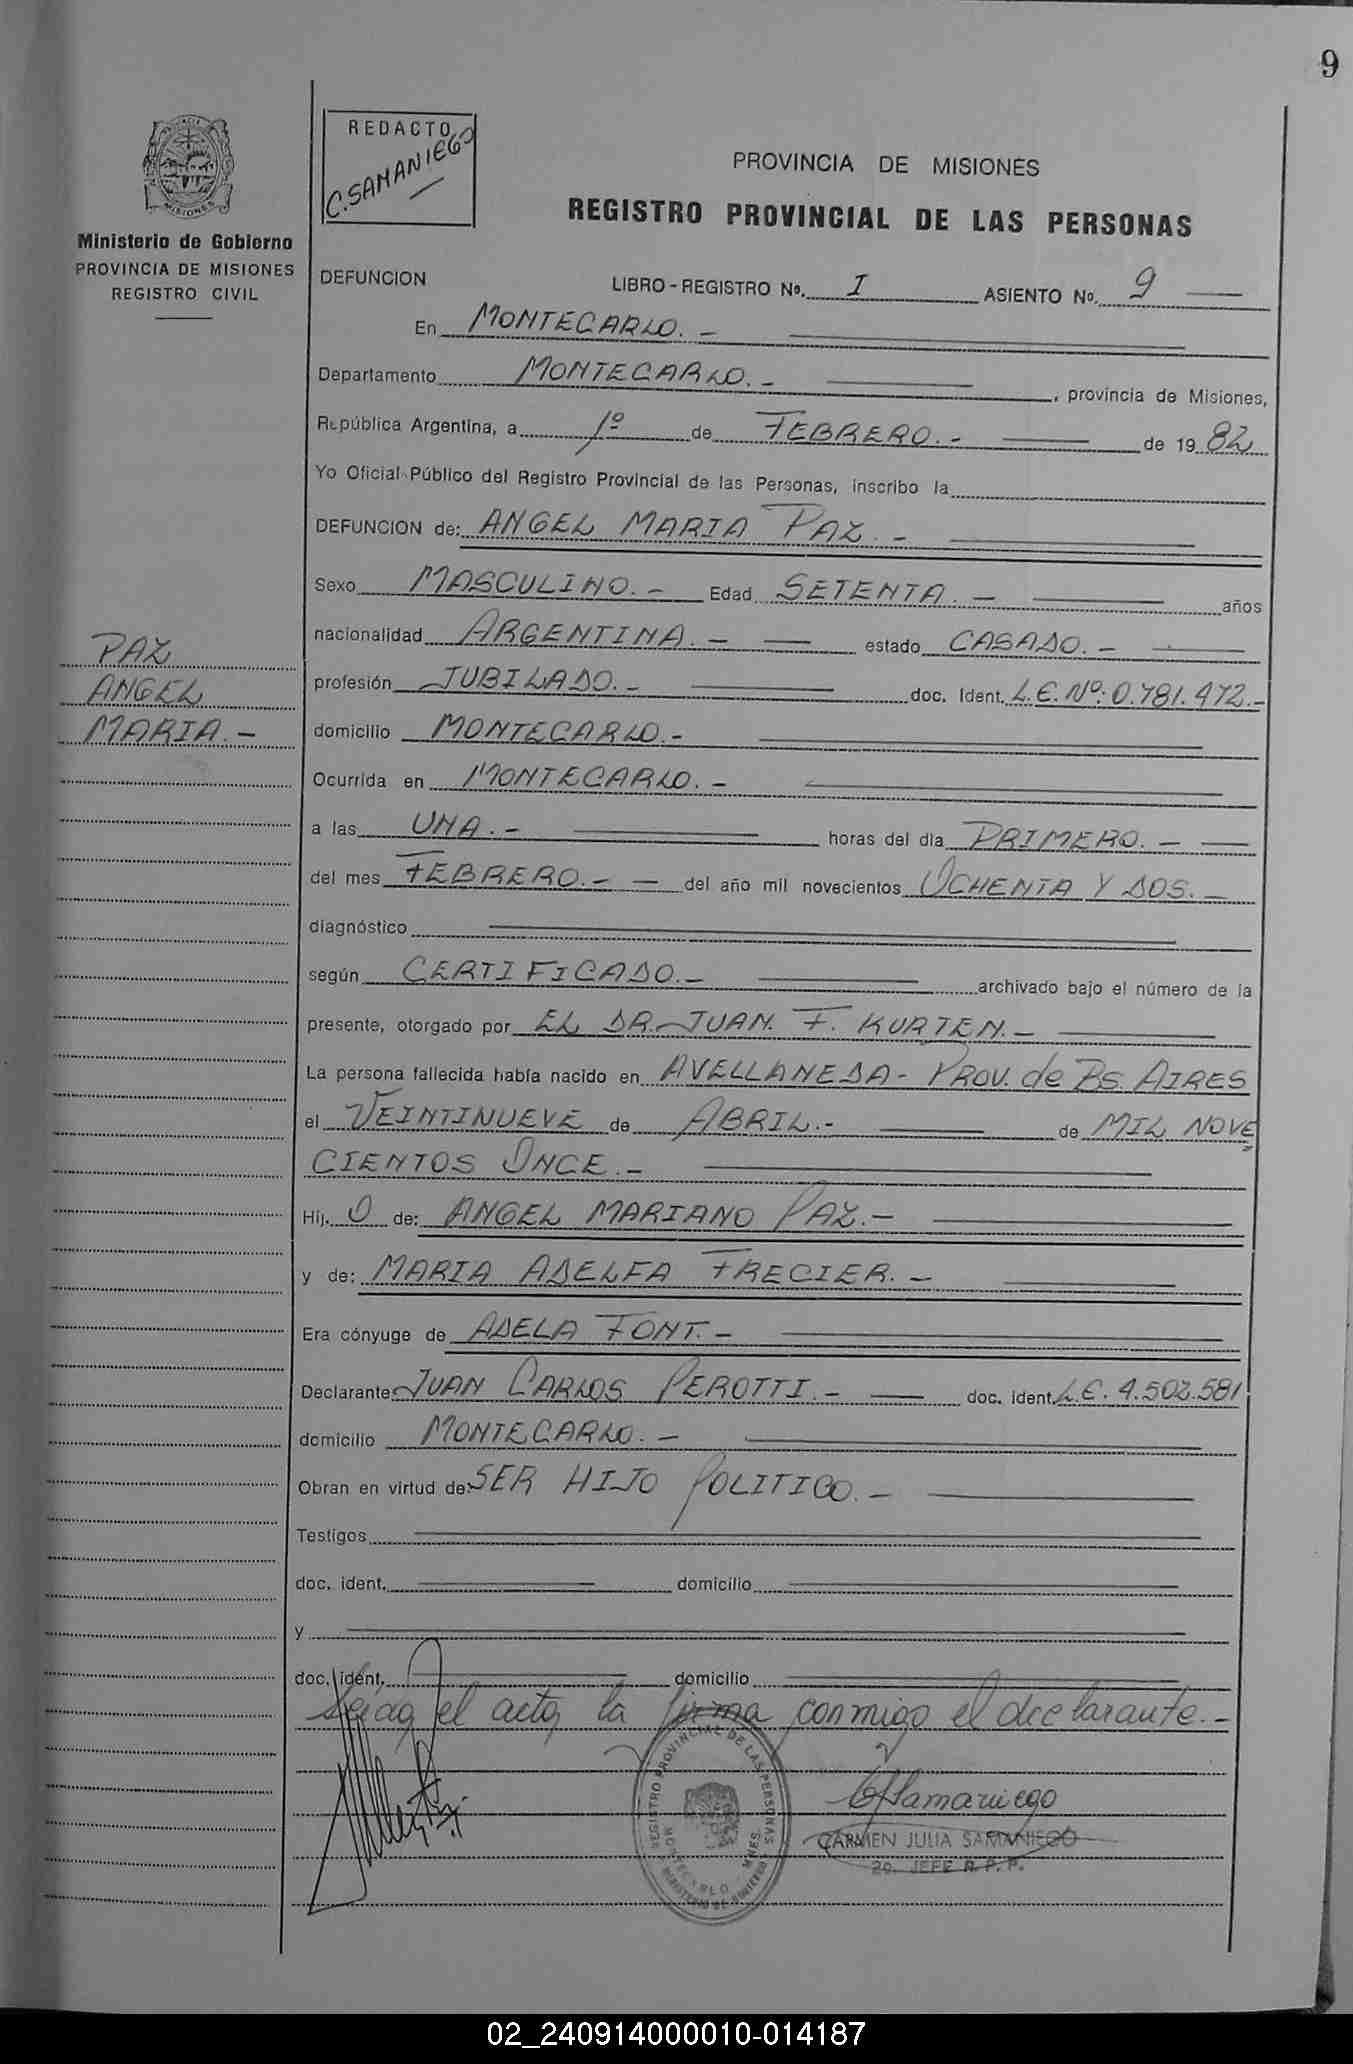 9
REDACTO
C. SAMANIEGO
MISIONES
Ministerio de Gobierno
PROVINCIA DE MISIONES
REGISTRO CIVIL
PROVINCIA DE MISIONES
REGISTRO PROVINCIAL DE LAS PERSONAS
DEFUNCION LIBRO - REGISTRO Nº. I ASIENTO Nº. 9
En MONTECARLO.-
Departamento MONTECARLO.- , provincia de Misiones,
República Argentina, a 1º de FEBRERO.- de 1982
Yo Oficial Público del Registro Provincial de las Personas, inscribo la
DEFUNCION de: ANGEL MARIA PAZ.-
Sexo MASCULINO.- Edad SETENTA.- años
nacionalidad ARGENTINA.- estado CASADO.-
PAZ
ANGEL
MARIA.-
profesión JUBILADO.- doc. Ident. L.E. Nº: 0.781.472.-
domicilio MONTECARLO.-
Ocurrida en MONTECARLO.-
a las UNA.- horas del día PRIMERO.-
del mes FEBRERO.- del año mil novecientos OCHENTA Y DOS.-
diagnóstico
según CERTIFICADO.- archivado bajo el número de la
presente, otorgado por EL DR. JUAN. F. KURTEN.-
La persona fallecida había nacido en AVELLANEDA - PROV. de BS. AIRES
el VEINTINUEVE de ABRIL.- de MIL NOVE
CIENTOS ONCE.-
Hij. O de: ANGEL MARIANO PAZ.-
y de: MARIA ADELFA FRECIER.-
Era cónyuge de ADELA FONT.-
Declarante JUAN CARLOS PEROTTI.- doc. ident. L.E. 4.502.581
domicilio MONTECARLO.-
Obran en virtud de: SER HIJO POLITICO.-
Testigos
doc. ident. domicilio
y
doc. ident. domicilio
Leída el acta, la firma conmigo el declarante.-
REGISTRO PROVINCIAL DE LAS PERSONAS
MONTECARLO - MNES.
MINISTERIO DE GOBIERNO
CJSamaniego
CARMEN JULIA SAMANIEGO
2o. JEFE R. P. P.
02_240914000010-014187